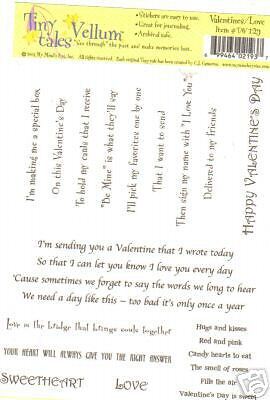 Tiny tales Vellum™
"See through" the past and make memories last.
• Stickers are easy to use.
• Great for journaling.
• Archival safe.
Valentines/Love
Item #TWT29
99464 02195
I'm making me a special box
On this Valentine's Day
To hold my cards that I receive
"Be Mine" is what they'll say
I'll pick my favorites one by one
That I want to send
Then sign my name with "I Love You"
Delivered to my friends
HAPPY VALENTINE'S DAY
I'm sending you a Valentine that I wrote today
So that I can let you know I love you every day
'Cause sometimes we forget to say the words we long to hear
We need a day like this – too bad it's only once a year
Love is the bridge that brings souls together
YOUR HEART WILL ALWAYS GIVE YOU THE RIGHT ANSWER
SWEETHEART
LOVE
Hugs and kisses
Red and pink
Candy hearts to eat
The smell of roses
Fills the air
Valentine's Day is sweet